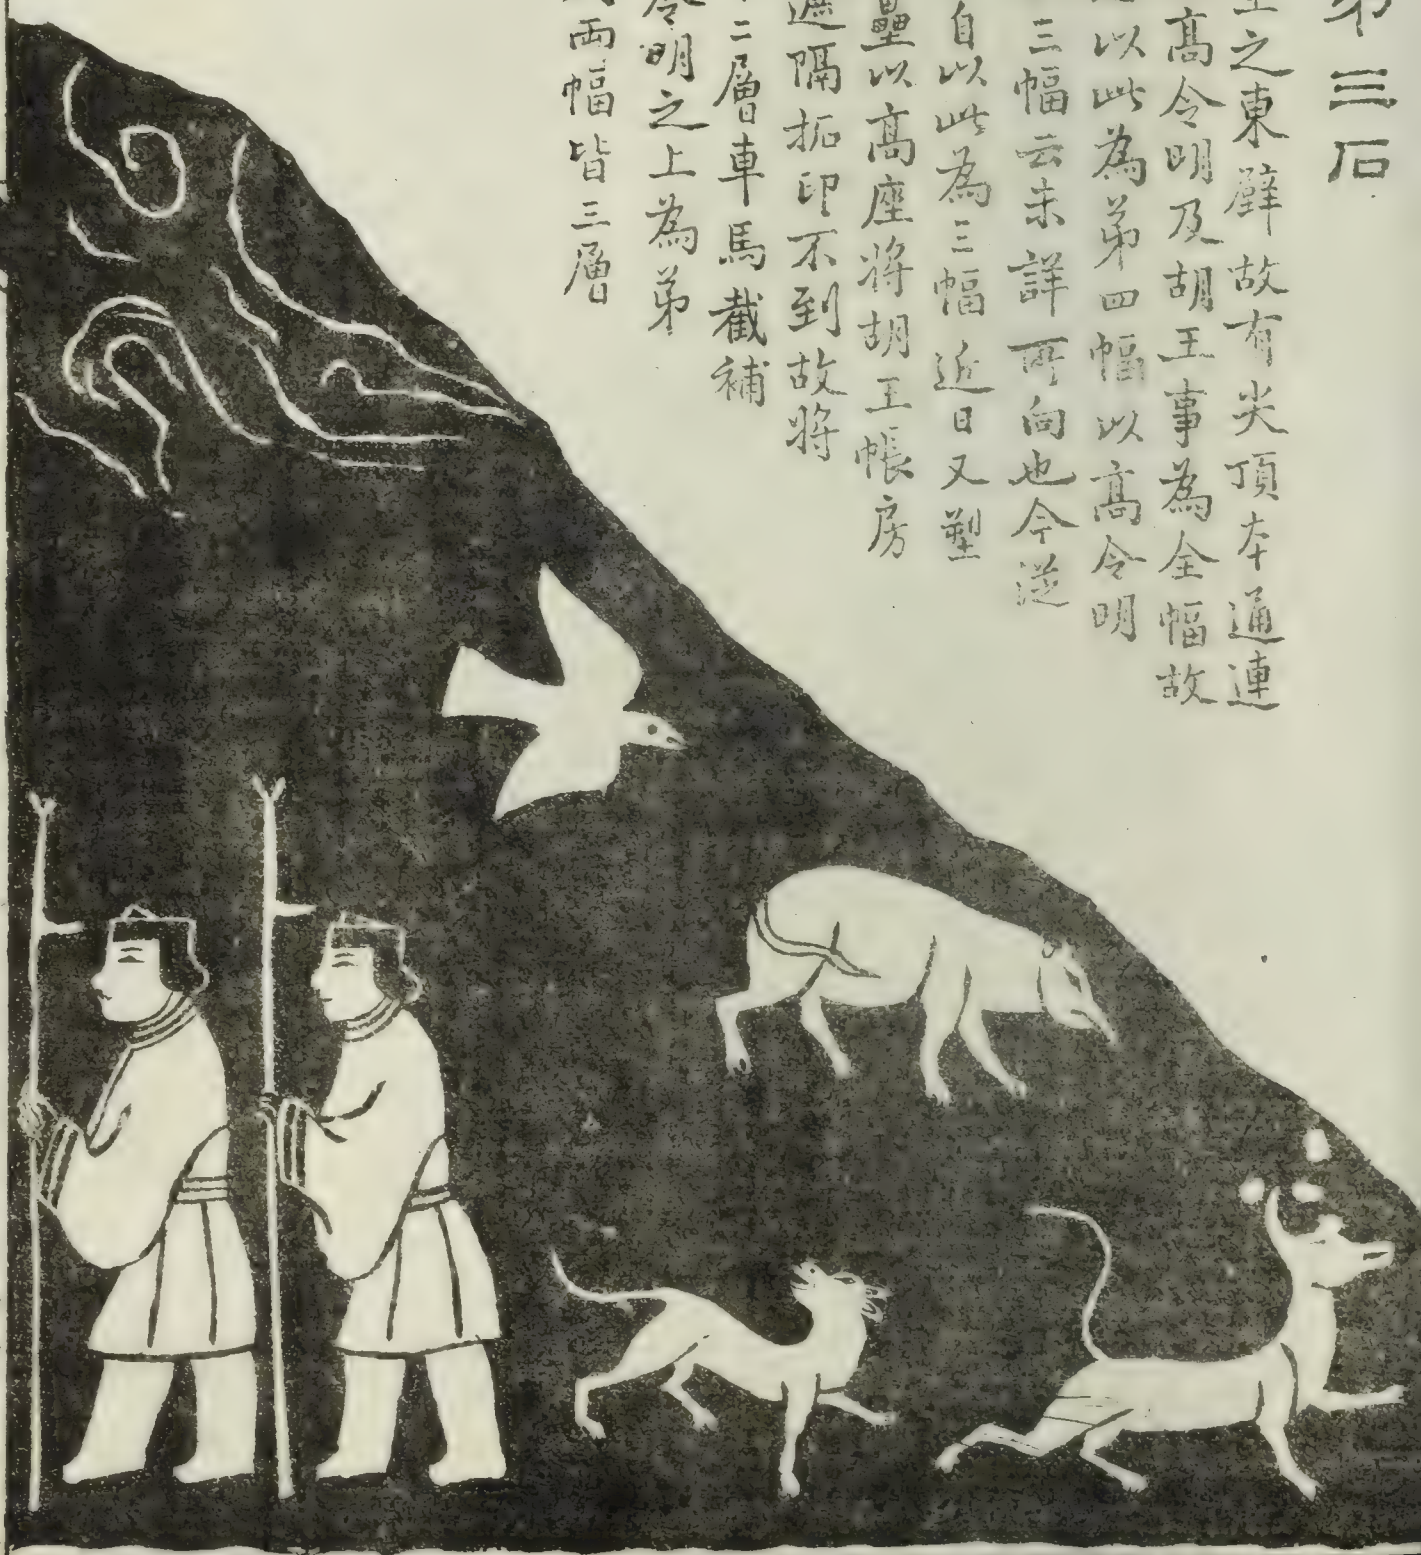 第三石
之東壁故有尖頂本通連
高令明及胡王事為全幅故
以此為第四幅以高令明
三幅云未詳所向也今從
自以此為三幅近日又塑
壘以高座將胡王帳房
遮隔拓印不到故將
二層車馬截補
令明之上為第
兩幅皆三層